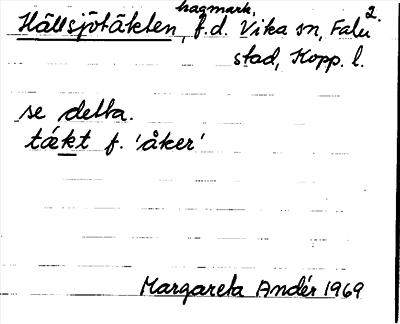 hagmark,
Hällsjötäkten, f.d. Vika sn, Falu 2.
stad, Kopp. l.
se detta.
tǽkt f. 'åker'
Margareta Andér 1969